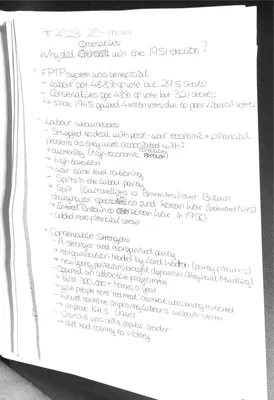 * 2023 20-marker
Conservatives
Why did win the 1951 election?
• FPTP system was beneficial
- Labour got 48.8% of vote but 295 seats
- Conservatives got 48% of vote but 321 seats
→ since 1945 gained 4 million votes due to poor Liberal votes
• Labour weaknesses
- Struggled to deal with post-war economic + financial
problems as they were associated with:
→ austerity (high economic conditions)
→ high taxation
→ war time level rationing
- Splits in the Labour party
→ Split (Gaitskellites vs Bevanites) over Britain
charging for to fund Korean War (undermined NHS)
- Entered Britain to Korean War in 1950
→ added more financial strain
• Conservative Strengths
- A stronger and reorganised party
→ reorganisation headed by Lord Woolton (party finances)
→ new young politicians brought dynamism (Reginald Maudling)
- Offered an attractive programme
→ build 300,000+ houses a year
→ give people more red meat as meat was being rationed
- Would continue improving Labour's welfare state
→ improve NHS (1946)
- Churchill was still a popular leader
→ did lead country to victory